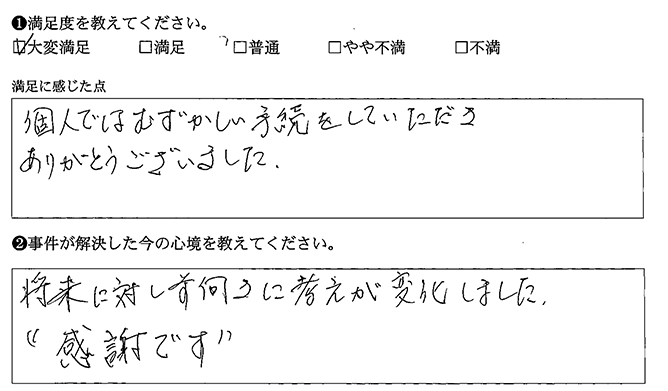 ❶満足度を教えてください。
☑大変満足 □満足 □普通 □やや不満 □不満
満足に感じた点
個人ではむずかしい手続をしていただき
ありがとうございました.
❷事件が解決した今の心境を教えてください。
将来に対し前向きに考えが変化しました.
“感謝です”